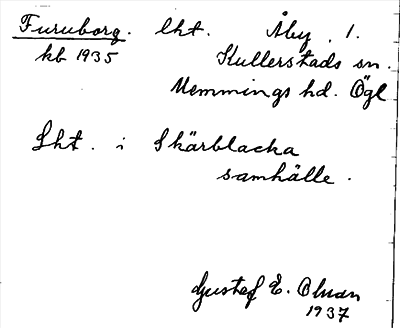 Furuborg. lht. Åby, 1.
kb 1935 Kullerstads sn.
Memmings hd. Ögl
Lht. i Skärblacka
samhälle.
Gustaf E. Olson
1937